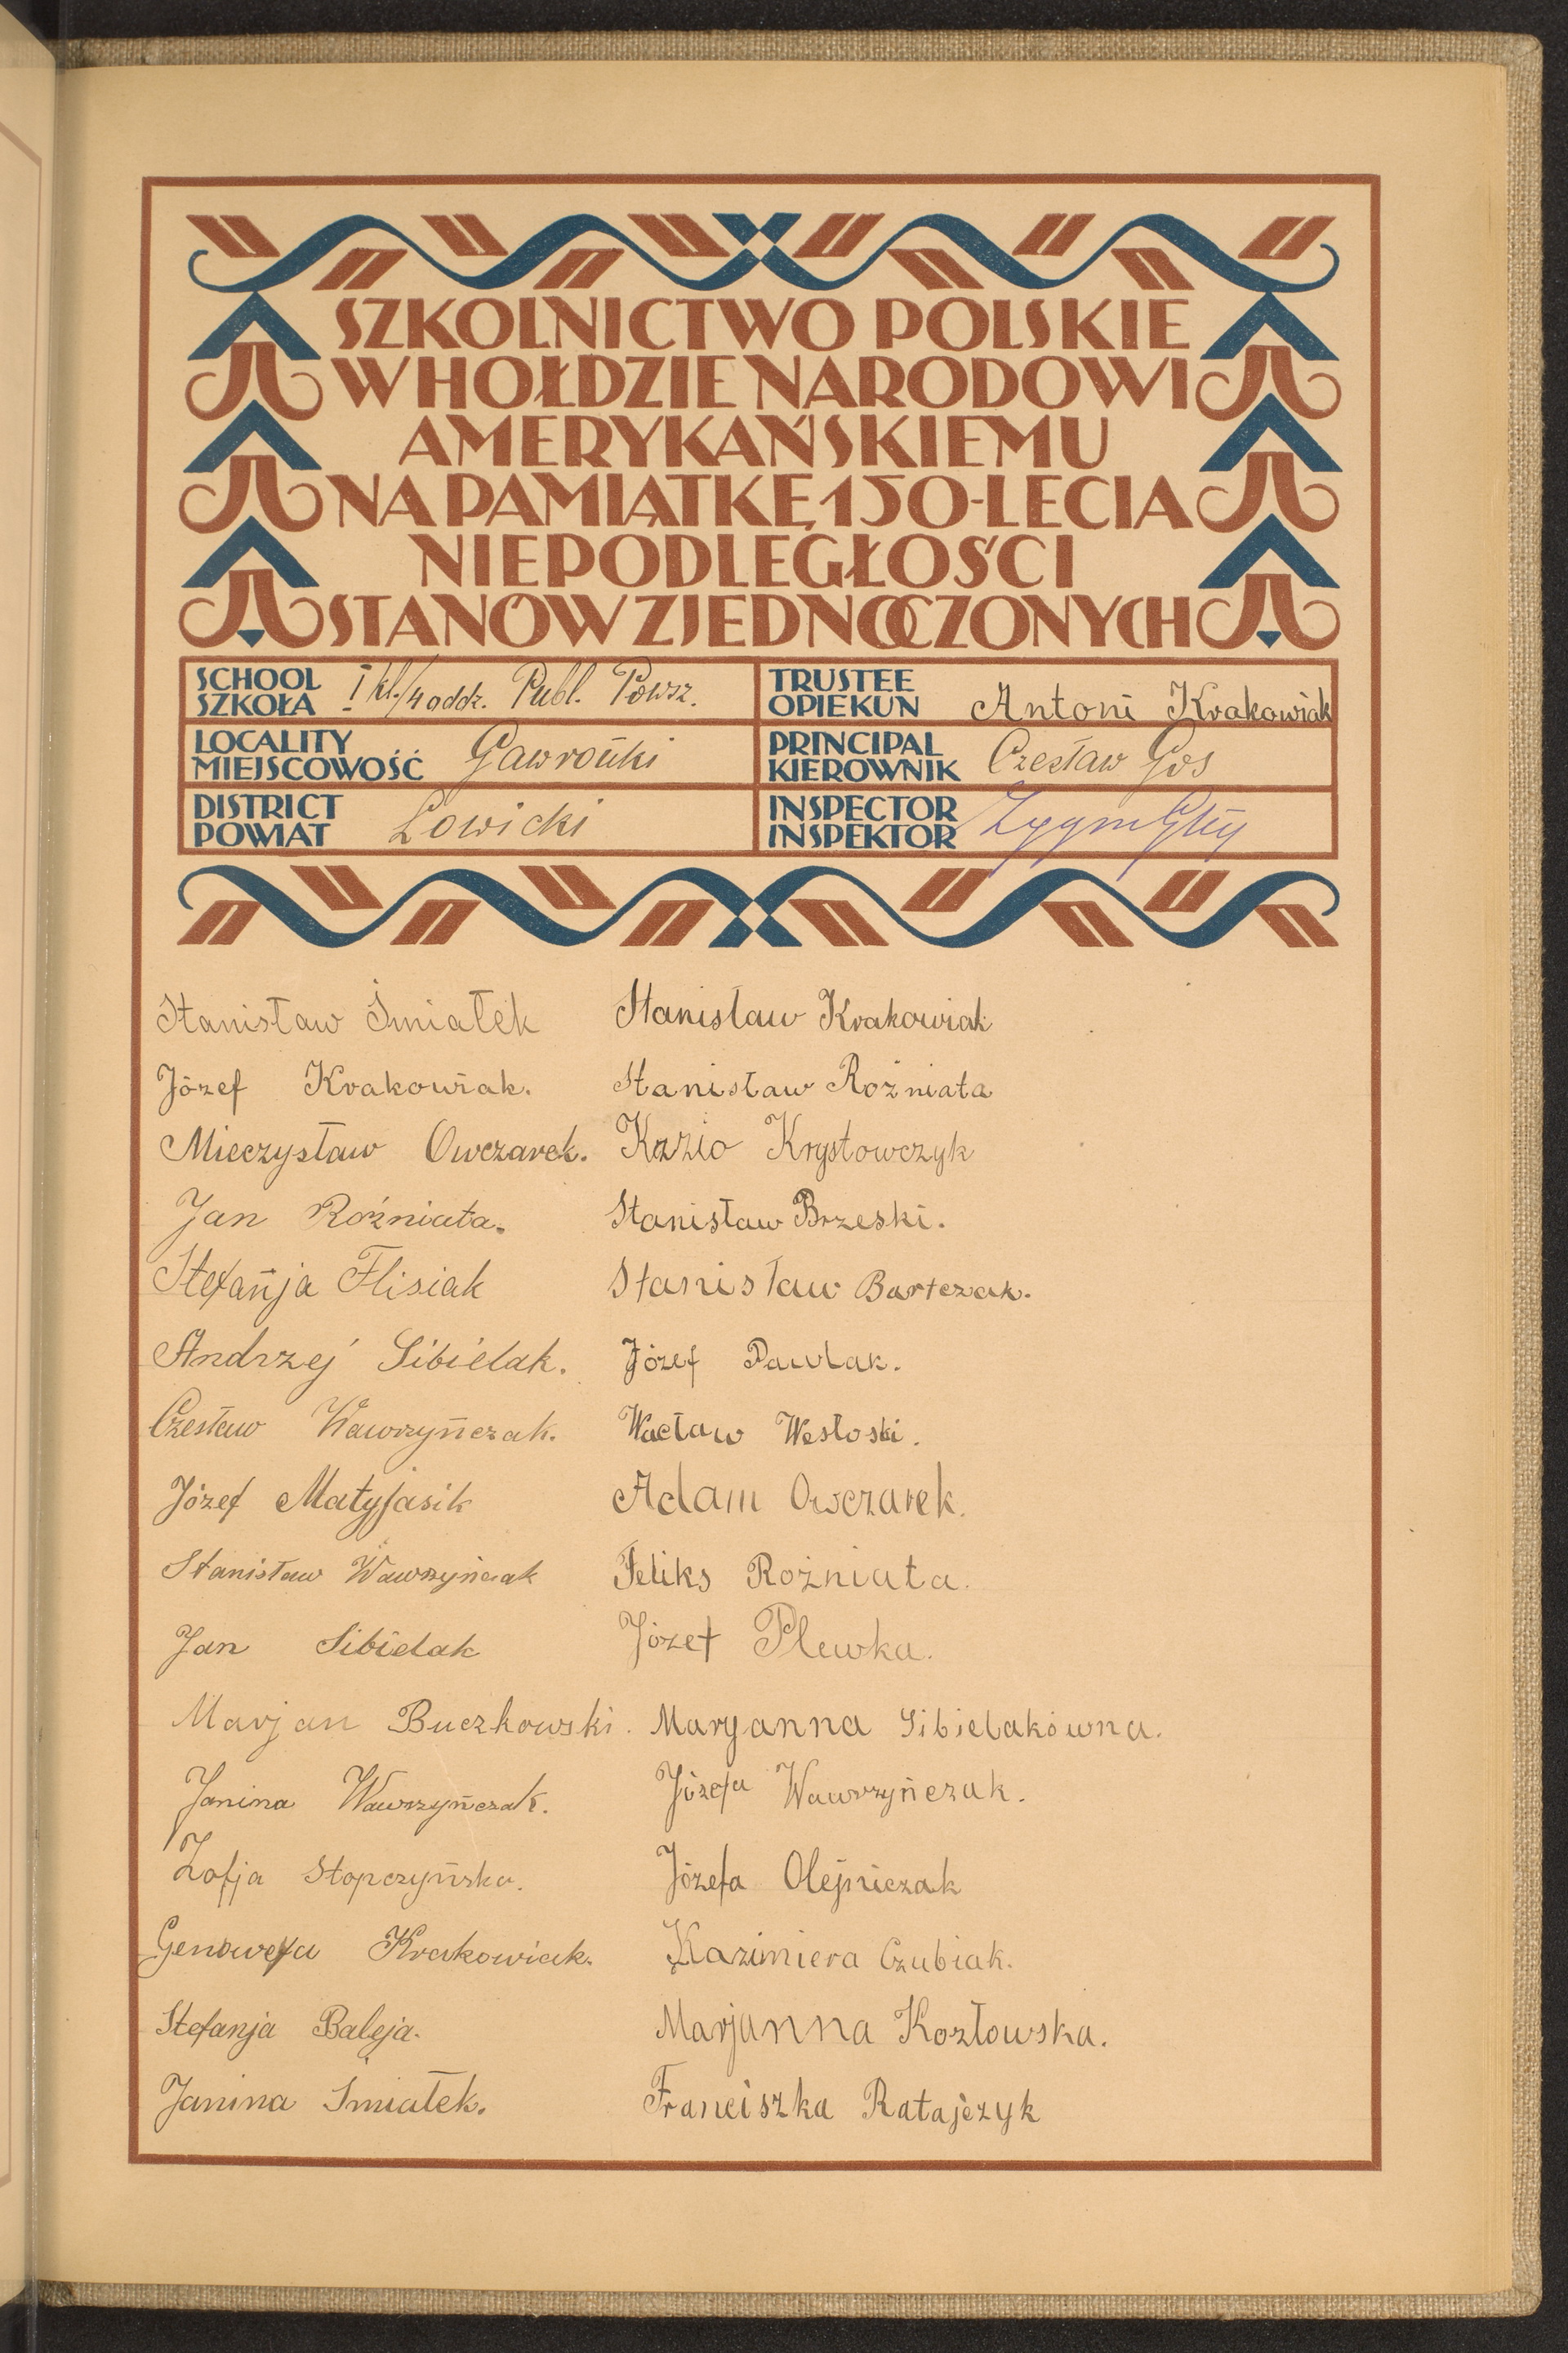 SZKOLNICTWO POLSKIE
W HOŁDZIE NARODOWI
AMERYKAŃSKIEMU
NA PAMIĄTKĘ 150-LECIA
NIEPODLEGŁOŚCI
STANÓW ZJEDNOCZONYCH
SCHOOL
SZKOŁA I kl./4 oddz. Publ. Powsz.
TRUSTEE
OPIEKUN Antoni Krakowiak
LOCALITY
MIEJSCOWOŚĆ Gawrońki
PRINCIPAL
KIEROWNIK Czesław Gos
DISTRICT
POWIAT Łowicki
INSPECTOR
INSPEKTOR
Stanisław Śmiałek
Józef Krakowiak.
Mieczysław Owczarek.
Jan Rożniata.
Stefańja Flisiak
Andrzej Sibielak.
Czesław Wawrzyńczak.
Józef Matyjasik
Stanisław Wawrzyńczak
Jan Sibielak
Marjan Buczkowski.
Janina Wawrzyńczak.
Zofja Stopczyńska.
Genowefa Krakowiak.
Stefanja Baleja.
Janina Śmiałek.
Stanisław Krakowiak
Stanisław Rożniata
Kazio Krystowczyk
Stanisław Brzeski.
Stanisław Bartczak.
Józef Pawlak.
Wacław Wesłoski.
Adam Owczarek.
Feliks Rożniata.
Józef Plewka.
Maryanna Sibielakówna.
Józefa Wawrzyńczak.
Józefa Olejniczak
Kazimiera Czubiak.
Marjanna Kozłowska.
Franciszka Ratajczyk